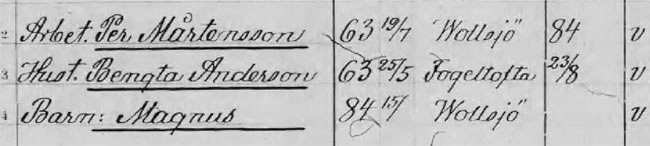 2 Arbet. Per Mårtensson 63 19/7 Wollsjö 84 v
3 Hust. Bengta Anderson 63 25/5 Fogeltofta 23/8 v
4 Barn: Magnus 84 15/ Wollsjö v